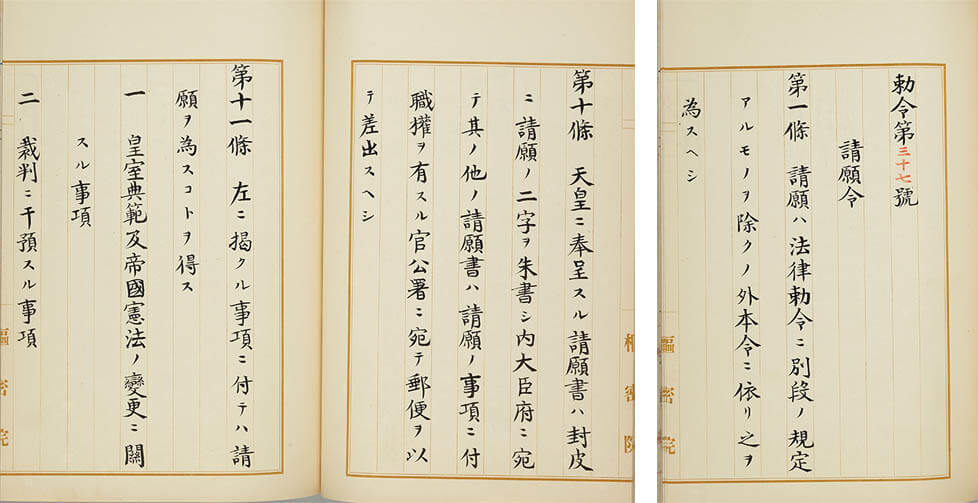 勅令第三十七號
請願令
第一條　請願ハ法律勅令ニ別段ノ規定
アルモノヲ除クノ外本令ニ依リ之ヲ
為スヘシ
樞密院
第十條　天皇ニ奉呈スル請願書ハ封皮
ニ請願ノ二字ヲ朱書シ内大臣府ニ宛
テ其ノ他ノ請願書ハ請願ノ事項ニ付
職權ヲ有スル官公署ニ宛テ郵便ヲ以
テ差出スヘシ
樞密院
第十一條　左ニ揭クル事項ニ付テハ請
願ヲ為スコトヲ得ス
一　皇室典範及帝國憲法ノ變更ニ關
スル事項
二　裁判ニ干預スル事項
樞密院